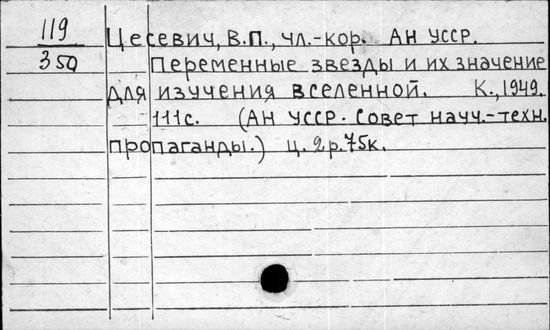 119
350
Цесевич, В.П., чл.-кор. АН УССР.
Переменные звезды и их значение
для изучения вселенной. К., 1949.
111с. (АН УССР. Совет науч.-техн.
пропаганды.) ц. 2р.75к.